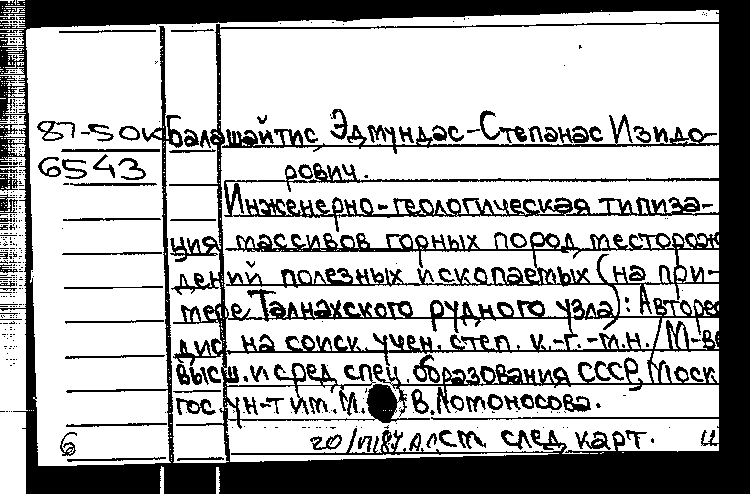 87-50к Балашайтис, Эдмундас-Степанас Изидо-
6543 рович.
Инженерно-геологическая типиза-
ция массивов горных пород месторож
дений полезных ископаемых (на при-
мере Талнахского рудного узла): Авторе
дис. на соиск. учен. степ. к.-г.-м.н. / М-в
высш. и сред. спец. образования СССР, Моск
гос. ун-т им. М. В. Ломоносова.
6 см. след. карт.